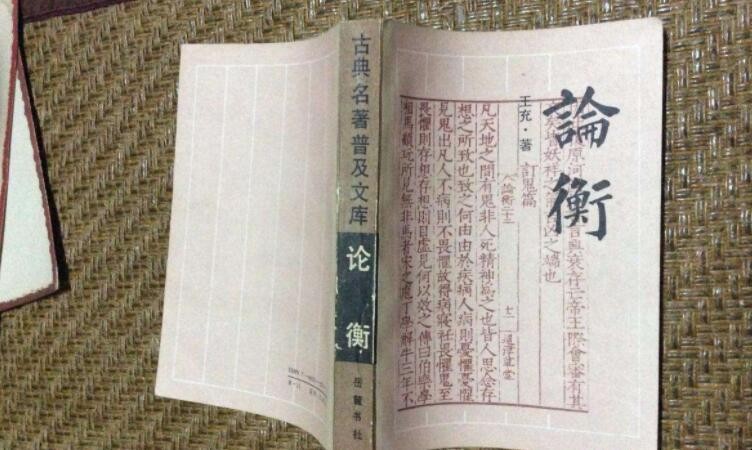 論衡
王充·著
訂鬼篇
凡天地之間有鬼非人死精神爲之也皆人思念存
想之所致也致之何由由於疾病人病則憂懼憂懼
見鬼出凡人不病則不畏懼故得病寢衽畏懼鬼至
畏懼則存想存想則目虛見何以效之傳曰伯樂學
相馬顧玩所見無非馬者宋之庖丁學解牛三年不
古典名著普及文库
论衡
岳麓书社